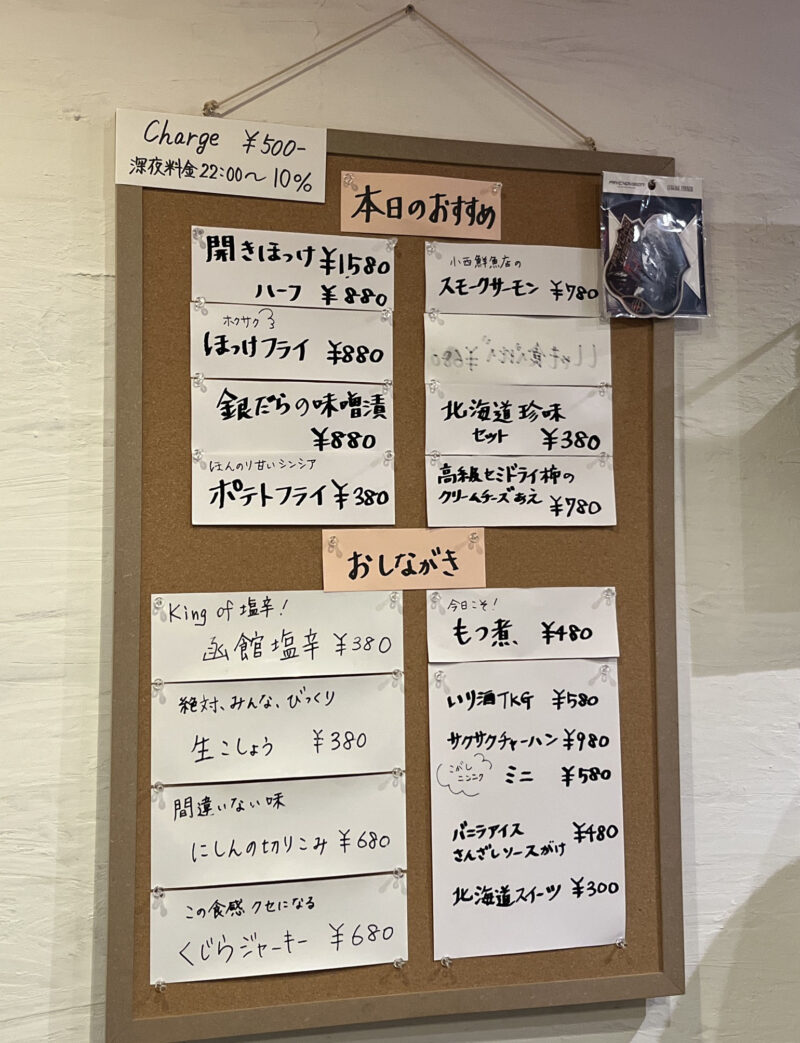 Charge ¥500-
深夜料金22:00〜10%
本日のおすすめ
開きほっけ ¥1580
ハーフ ¥880
ホクサク
ほっけフライ ¥880
銀だらの味噌漬
¥880
ほんのり甘いシンシア
ポテトフライ ¥380
小西鮮魚店の
スモークサーモン ¥780
¥680
北海道珍味
セット ¥380
高級セミドライ柿の
クリームチーズあえ ¥780
おしながき
King of 塩辛!
函館塩辛 ¥380
絶対、みんな、びっくり
生こしょう ¥380
間違いない味
にしんの切りこみ ¥680
この食感クセになる
くじらジャーキー ¥680
今日こそ!
もつ煮、 ¥480
いり酒TKG ¥580
サクサクチャーハン ¥980
こがし
ニンニク
ミニ ¥580
バニラアイス ¥480
さんざしソースがけ
北海道スイーツ ¥300